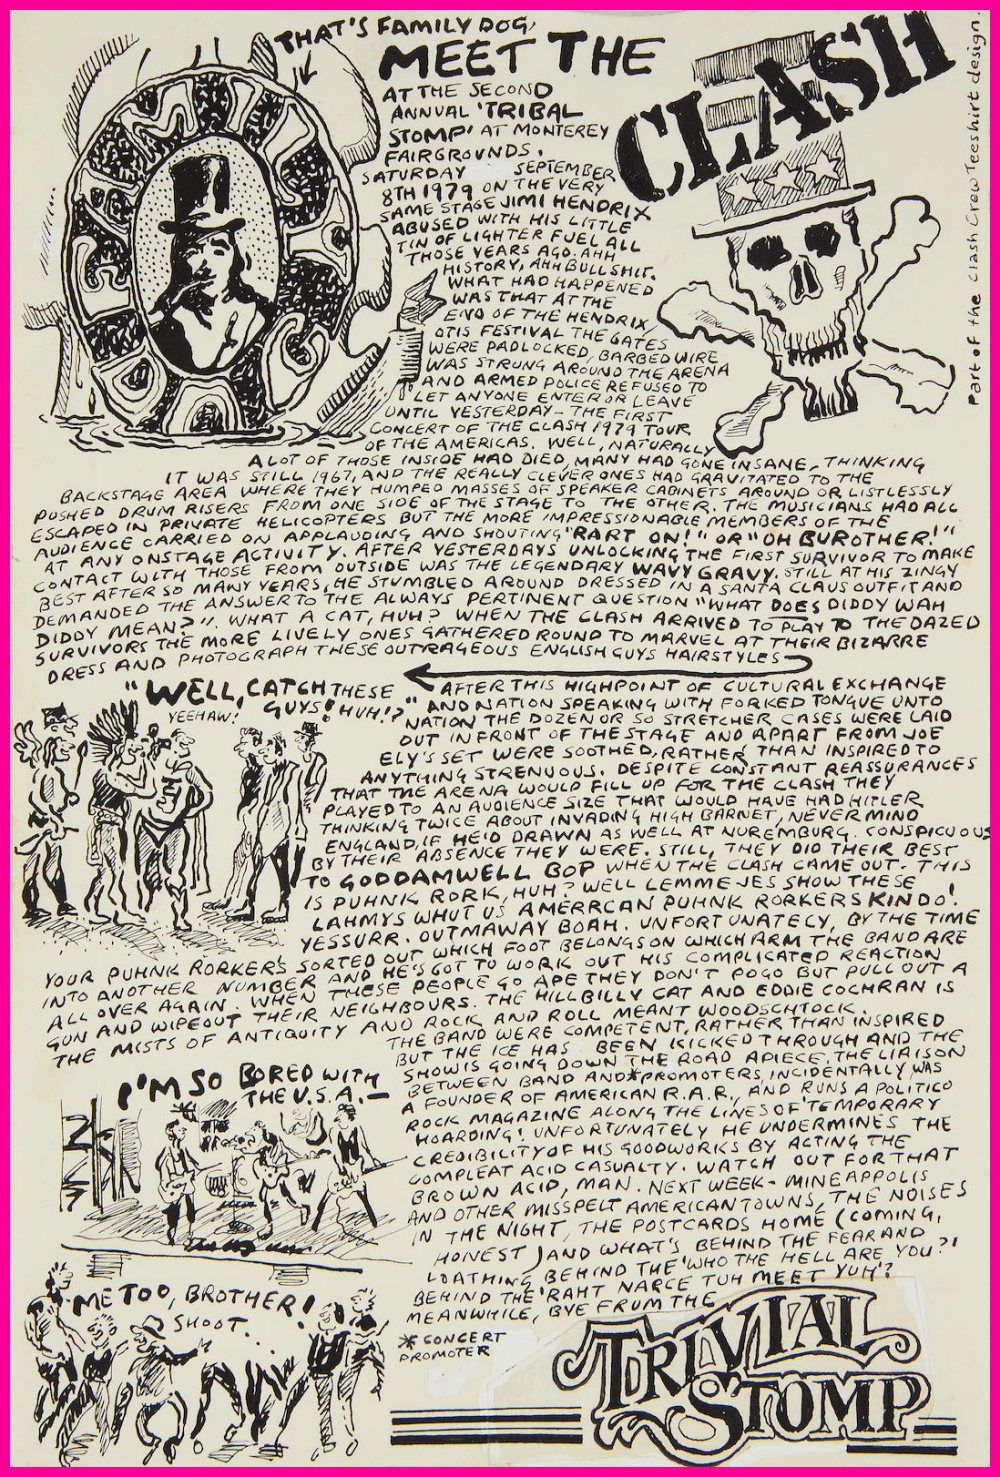 THAT'S FAMILY DOG
FAMILY DOG
MEET THE
CLASH
AT THE SECOND
ANNUAL 'TRIBAL
STOMP' AT MONTEREY
FAIRGROUNDS.
SATURDAY SEPTEMBER
8TH 1979 ON THE VERY
SAME STAGE JIMI HENDRIX
ABUSED WITH HIS LITTLE
TIN OF LIGHTER FUEL ALL
THOSE YEARS AGO. AHH
HISTORY, AHH BULLSHIT.
WHAT HAD HAPPENED
WAS THAT AT THE
END OF THE HENDRIX,
OTIS FESTIVAL THE GATES
WERE PADLOCKED, BARBED WIRE
WAS STRUNG AROUND THE ARENA
AND ARMED POLICE REFUSED TO
LET ANYONE ENTER OR LEAVE
UNTIL YESTERDAY - THE FIRST
CONCERT OF THE CLASH 1979 TOUR
OF THE AMERICAS. WELL, NATURALLY
A LOT OF THOSE INSIDE HAD DIED, MANY HAD GONE INSANE, THINKING
IT WAS STILL 1967, AND THE REALLY CLEVER ONES HAD GRAVITATED TO THE
BACKSTAGE AREA WHERE THEY HUMPED MASSES OF SPEAKER CABINETS AROUND OR LISTLESSLY
PUSHED DRUM RISERS FROM ONE SIDE OF THE STAGE TO THE OTHER. THE MUSICIANS HAD ALL
ESCAPED IN PRIVATE HELICOPTERS BUT THE MORE IMPRESSIONABLE MEMBERS OF THE
AUDIENCE CARRIED ON APPLAUDING AND SHOUTING "RART ON!" OR "OH BUROTHER!"
AT ANY ONSTAGE ACTIVITY. AFTER YESTERDAYS UNLOCKING THE FIRST SURVIVOR TO MAKE
CONTACT WITH THOSE FROM OUTSIDE WAS THE LEGENDARY WAVY GRAVY. STILL AT HIS ZINGY
BEST AFTER SO MANY YEARS, HE STUMBLED AROUND DRESSED IN A SANTA CLAUS OUTFIT AND
DEMANDED THE ANSWER TO THE ALWAYS PERTINENT QUESTION "WHAT DOES DIDDY WAH
DIDDY MEAN?". WHAT A CAT, HUH? WHEN THE CLASH ARRIVED TO PLAY TO THE DAZED
SURVIVORS THE MORE LIVELY ONES GATHERED ROUND TO MARVEL AT THEIR BIZARRE
DRESS AND PHOTOGRAPH THESE OUTRAGEOUS ENGLISH GUYS HAIRSTYLES
"WELL, CATCH THESE
GUYS! HUH!?"
YEEHAW!
AFTER THIS HIGHPOINT OF CULTURAL EXCHANGE
AND NATION SPEAKING WITH FORKED TONGUE UNTO
NATION THE DOZEN OR SO STRETCHER CASES WERE LAID
OUT IN FRONT OF THE STAGE AND APART FROM JOE
ELY'S SET WERE SOOTHED, RATHER THAN INSPIRED TO
ANYTHING STRENUOUS. DESPITE CONSTANT REASSURANCES
THAT THE ARENA WOULD FILL UP FOR THE CLASH THEY
PLAYED TO AN AUDIENCE SIZE THAT WOULD HAVE HAD HITLER
THINKING TWICE ABOUT INVADING HIGH BARNET, NEVER MIND
ENGLAND, IF HE'D DRAWN AS WELL AT NUREMBURG. CONSPICUOUS
BY THEIR ABSENCE THEY WERE. STILL, THEY DID THEIR BEST
TO GODDAMWELL BOP WHEN THE CLASH CAME OUT - THIS
IS PUHNK RORK, HUH? WELL LEMME JES SHOW THESE
LAHMYS WHUT US AMERRCAN PUHNK RORKERS KIN DO!
YESSURR. OUTMAWAY BOAH. UNFORTUNATELY, BY THE TIME
YOUR PUHNK RORKER'S SORTED OUT WHICH FOOT BELONGS ON WHICH ARM THE BAND ARE
INTO ANOTHER NUMBER AND HE'S GOT TO WORK OUT HIS COMPLICATED REACTION
ALL OVER AGAIN. WHEN THESE PEOPLE GO APE THEY DON'T POGO BUT PULL OUT A
GUN AND WIPEOUT THEIR NEIGHBOURS. THE HILLBILLY CAT AND EDDIE COCHRAN IS
THE MISTS OF ANTIQUITY AND ROCK AND ROLL MEANT WOODSCHTOCK.
THE BAND WERE COMPETENT, RATHER THAN INSPIRED
BUT THE ICE HAS BEEN KICKED THROUGH AND THE
SHOW IS GOING DOWN THE ROAD APIECE. THE LIAISON
BETWEEN BAND AND *PROMOTERS, INCIDENTALLY, WAS
A FOUNDER OF AMERICAN R.A.R., AND RUNS A POLITICO
ROCK MAGAZINE ALONG THE LINES OF 'TEMPORARY
HOARDING'. UNFORTUNATELY HE UNDERMINES THE
CREDIBILITY OF HIS GOODWORKS BY ACTING THE
COMPLEAT ACID CASUALTY. WATCH OUT FOR THAT
BROWN ACID, MAN. NEXT WEEK - MINEAPPOLIS
AND OTHER MISSPELT AMERICAN TOWNS, THE NOISES
IN THE NIGHT, THE POSTCARDS HOME (COMING,
HONEST) AND WHAT'S BEHIND THE FEAR AND
LOATHING BEHIND THE 'WHO THE HELL ARE YOU?!'
BEHIND THE 'RAHT NARCE TUH MEET YUH'?
MEANWHILE, BYE FRUM THE
TRIVIAL
STOMP
* CONCERT
PROMOTER
I'M SO BORED WITH
THE U.S.A.-
"ME TOO, BROTHER!
SHOOT.
Part of the Clash Crew Teeshirt design.